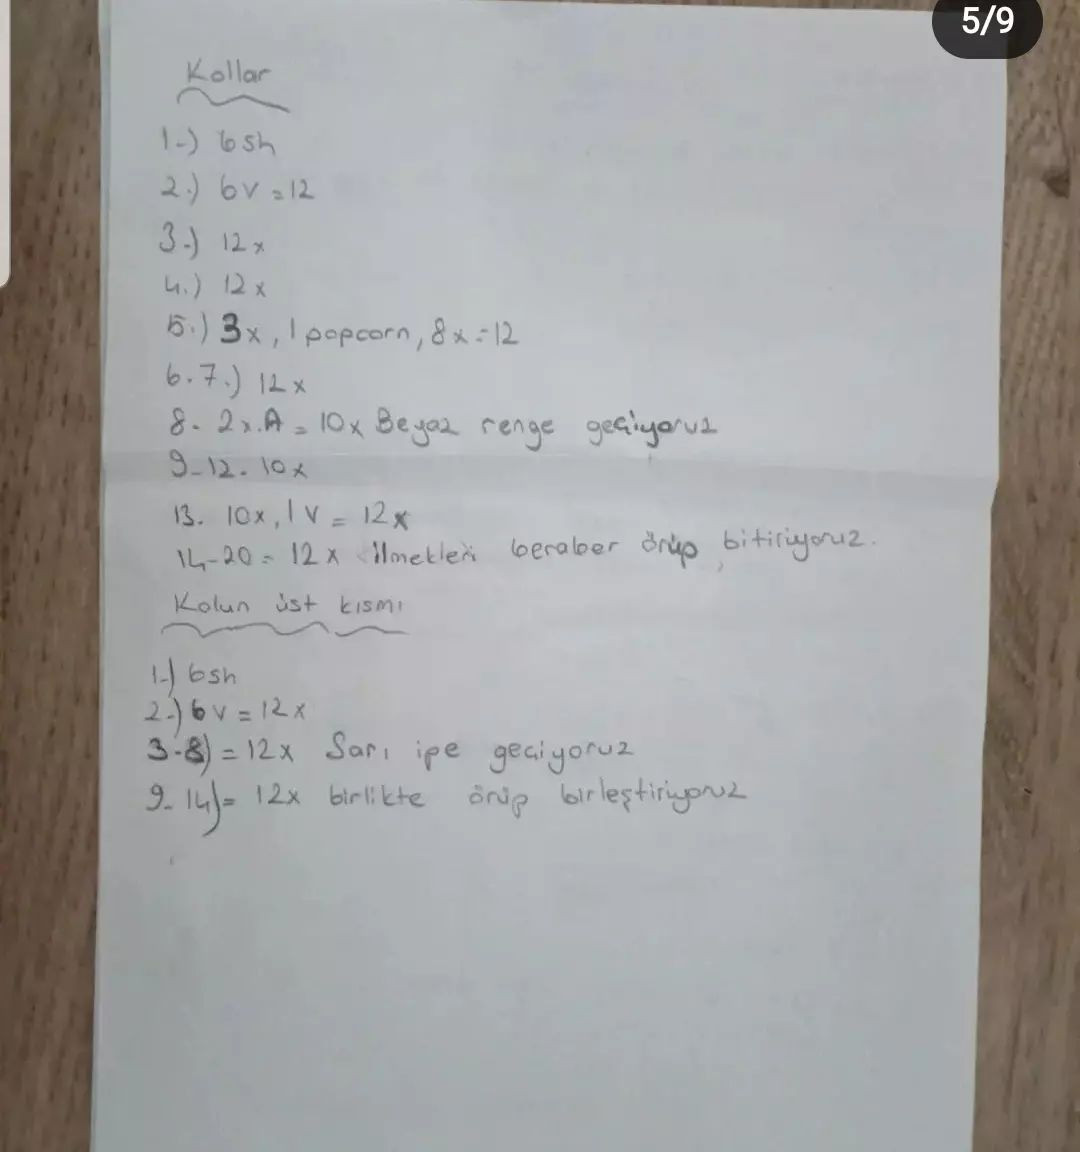 5/9
Kollar
1-) 6sh
2.) 6v=12
3-) 12x
4.) 12x
5.) 3x, 1 popcorn, 8x=12
6.7.) 12x
8- 2x.A = 10x Beyaz renge geçiyoruz
9-12- 10x
13. 10x, 1v = 12x
14-20 = 12x ilmekleri beraber örüp, bitiriyoruz.
Kolun üst kısmı
1-) 6sh
2-) 6v = 12x
3-8) = 12x Sarı ipe geçiyoruz
9-14) = 12x birlikte örüp birleştiriyoruz